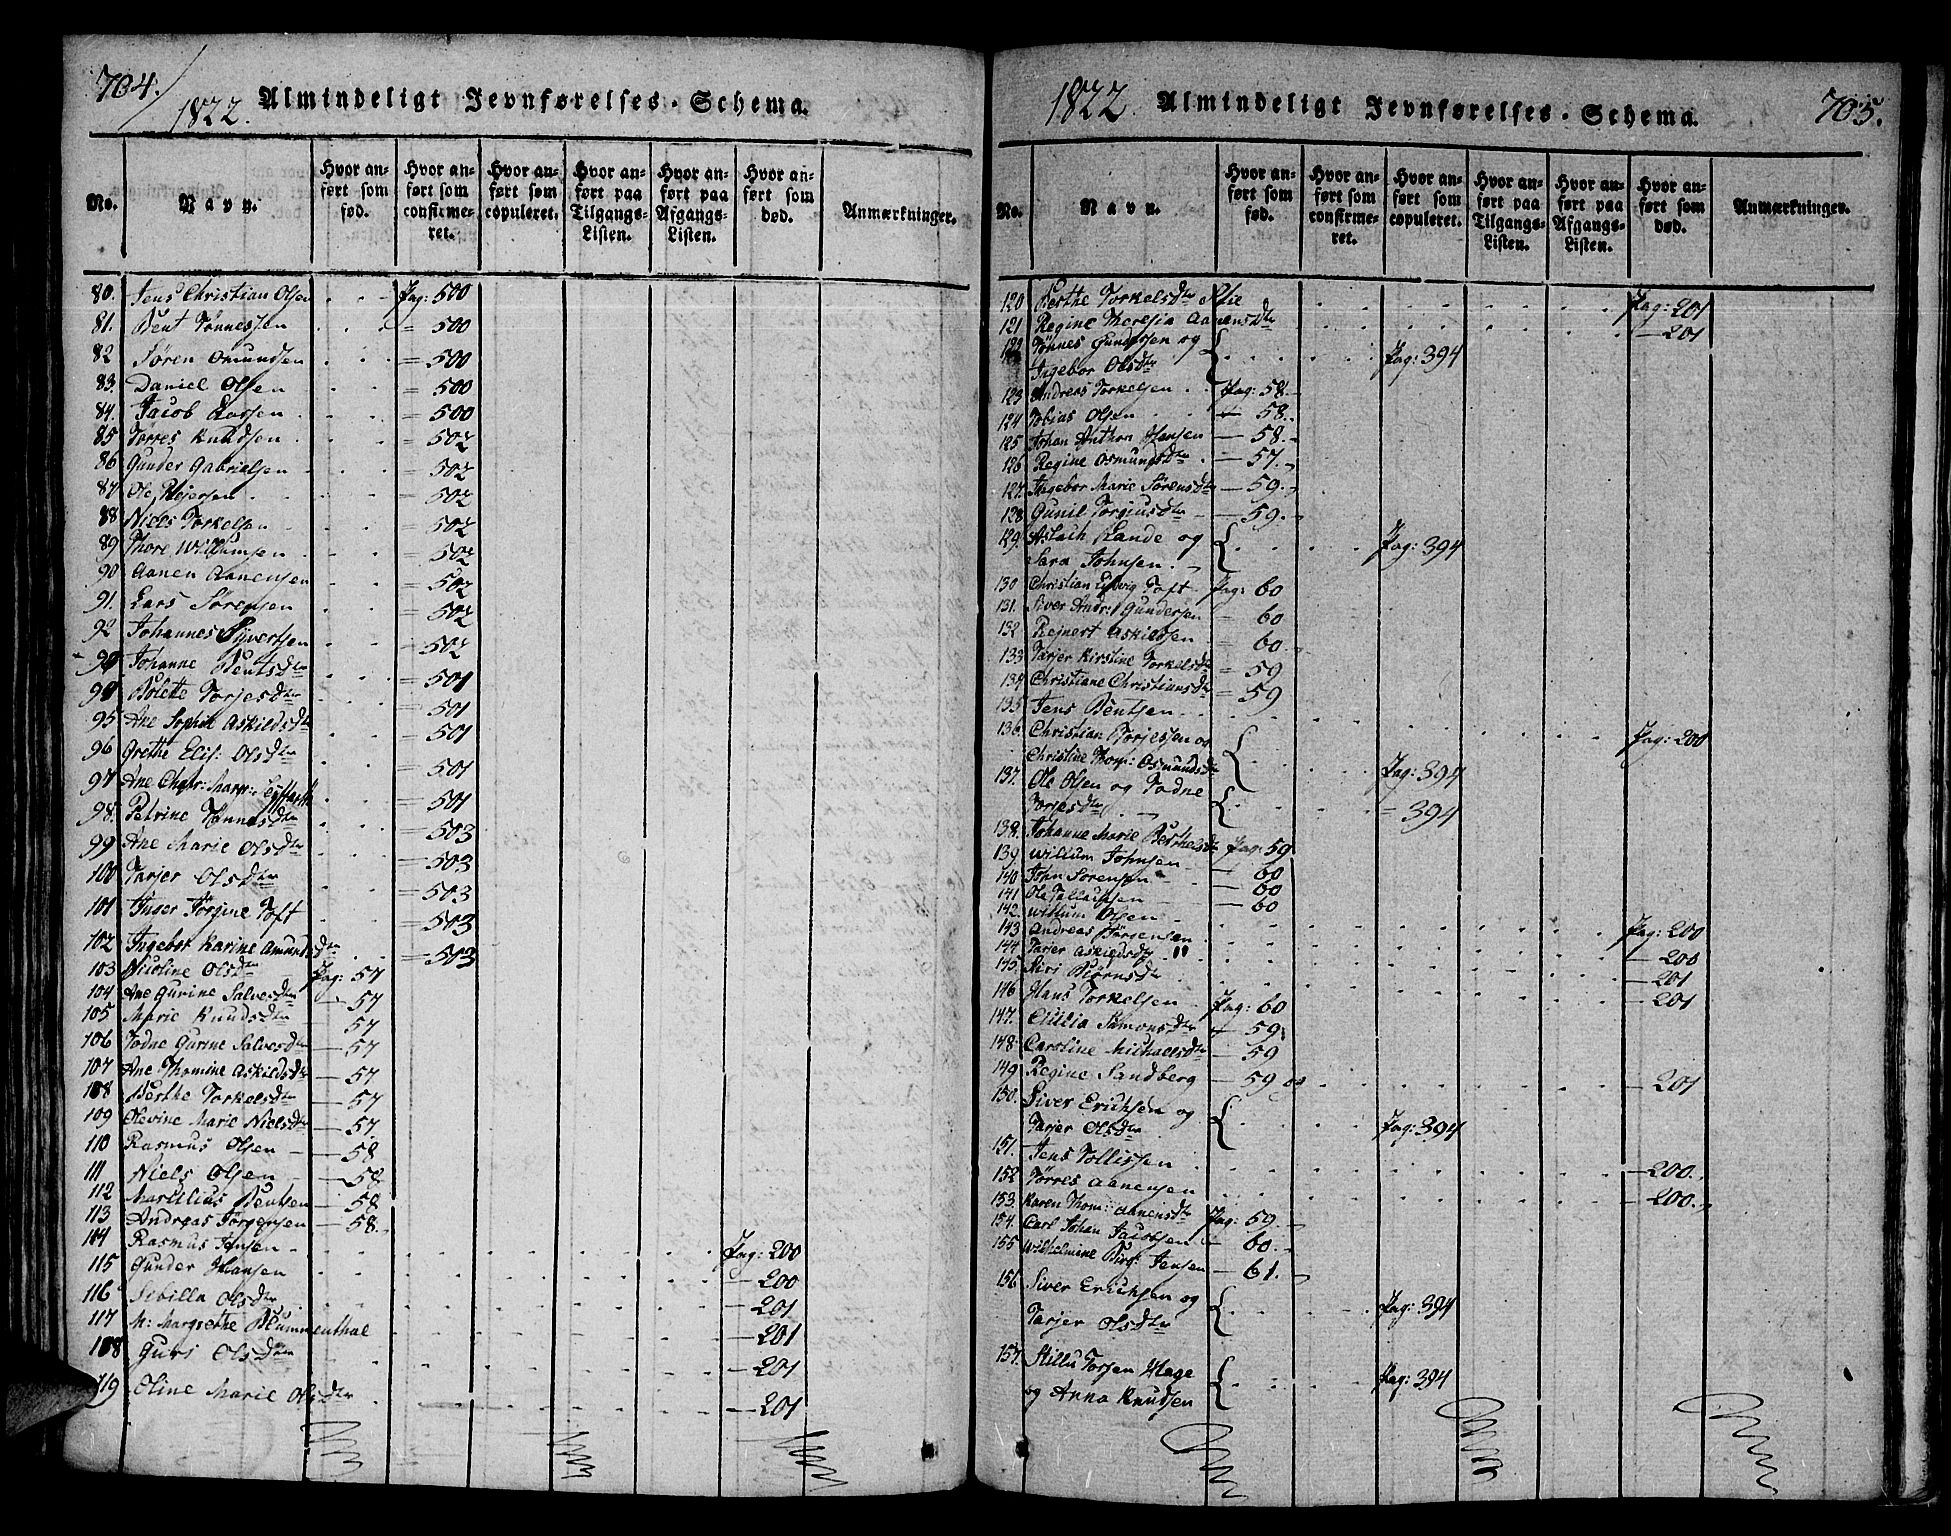 704.
1822. Almindeligt Jevnførelses-Schema.
No. Navn. Hvor anført som fød. Hvor anført som confirmeret. Hvor anført som copuleret. Hvor anført paa Tilgangs-Listen. Hvor anført paa Afgangs-Listen. Hvor anført som død. Anmærkninger.
80. Jens Christian Olsen Pag: 500
81. Bent Tønnessen = 500
82 Søren Omundsen = 500
83. Daniel Olsen = 500
84. Jacob Larsen = 500
85 Torres Knudsen = 502
86 Gunder Gabrielsen = 502
87 Ole Rejersen = 502
88 Niels Torkelsen = 502
89 Thore Willumsen = 502
90 Aanen Aanensen = 502
91. Lars Sørensen = 502
92 Johannes Syvertsen = 502
93 Johanne Bentsdtr = 501
94 Bolette Torjesdtr = 501
95 Ane Sophie Askildsdtr = 501
96 Grethe Elis: Olsdtr = 501
97 Ane Chatr: Marie = 501
98. Petrine Tønnesdtr = 503
99 Ane Marie Olsdtr = 503
100 Tarjer Olsdtr = 503
101 Inger Jørgine Toft = 503
102 Ingebor Karine Amundsdtr = 503
103 Nicoline Olsdtr Pag: 57
104 Ane Gurine Salvesdtr — 57
105 Marie Knudsdtr 57
106 Todne Gurine Salvesdtr — 57
107 Ane Thomine Askildsdtr — 57
108 Berthe Torkelsdtr — 57
109 Olevine Marie Nielsdtr — 57.
110 Rasmus Olsen — 58
111 Niels Olsen — 58
112 Marcelius Bentsen — 58
113 Andreas Jørgensen — 58.
114 Rasmus Jensen Pag: 200
115 Gunder Hansen — 200
116 Sibilla Olsdtr — 201
117 M: Margrethe Blummenthal — 201
118 Guri Olsdtr — 201
119 Oline Marie Olsdtr — 201
1822 Almindeligt Jevnførelses-Schema. 705.
No. Navn. Hvor anført som fød. Hvor anført som confirmeret. Hvor anført som copuleret. Hvor anført paa Tilgangs-Listen. Hvor anført paa Afgangs-Listen. Hvor anført som død. Anmærkninger.
120 Berthe Torkelsdtr Pag: 201
121 Regine Theresia Aanensdtr — 201
122 Tønnes Gundersen og
Ingebor Olsdtr Pag: 394
123 Andreas Torkelsen Pag: 58
124 Tobias Olsen — 58
125 Johan Anthon Hansen — 58
126 Regine Osmundsdtr — 57
127. Ingebor Marie Sørensdtr — 59
128 Gunil Torgiusdtr — 59.
129. Aslach Lande og
Sara Johnsen Pag: 394
130 Christian Toft Pag: 60
131. Siver Andr: Gundersen = 60
132 Rejnert Askildsen = 60
133 Tarjer Kirstine Torkelsdtr = 59
134 Christiane Christiansdtr = 59
135 Jens Bentsen Pag: 200
136. Christian Torjesen og
Christine Thom: Osmundsdtr Pag: 394
137. Ole Olsen og Todne
Torjesdtr = 394
138. Johanne Marie Berthelsdtr Pag: 59
139 Willum Johnsen — 60
140 John Sørensen — 60
141 Ole Tallaksen — 60
142. Willum Olsen Pag: 200
143 Andreas Jørgensen — 200
144 Tarjer Askildsdtr — 201
145. Siri Bjørnsdtr — 201
146 Hans Torkelsen Pag: 60
147. Cicilia Simonsdtr — 59
148 Caroline Michaelsdtr — 59
149 Regine Sandberg — 59 og — 201
150. Siver Ericksen og
Tarjer Olsdtr Pag: 394
151. Jens Tollissen — 200.
152 Torres Aanensen — 200.
153. Karen Thom: Aanensdtr Pag: 59
154. Carl Johan Jacobsen — 60.
155 Wilhelmine Birg: Jensen — 61.
156 Siver Ericksen og
Tarjer Olsdtr Pag: 394
157. Torsen Hage
og Anna Knudsen Pag: 394